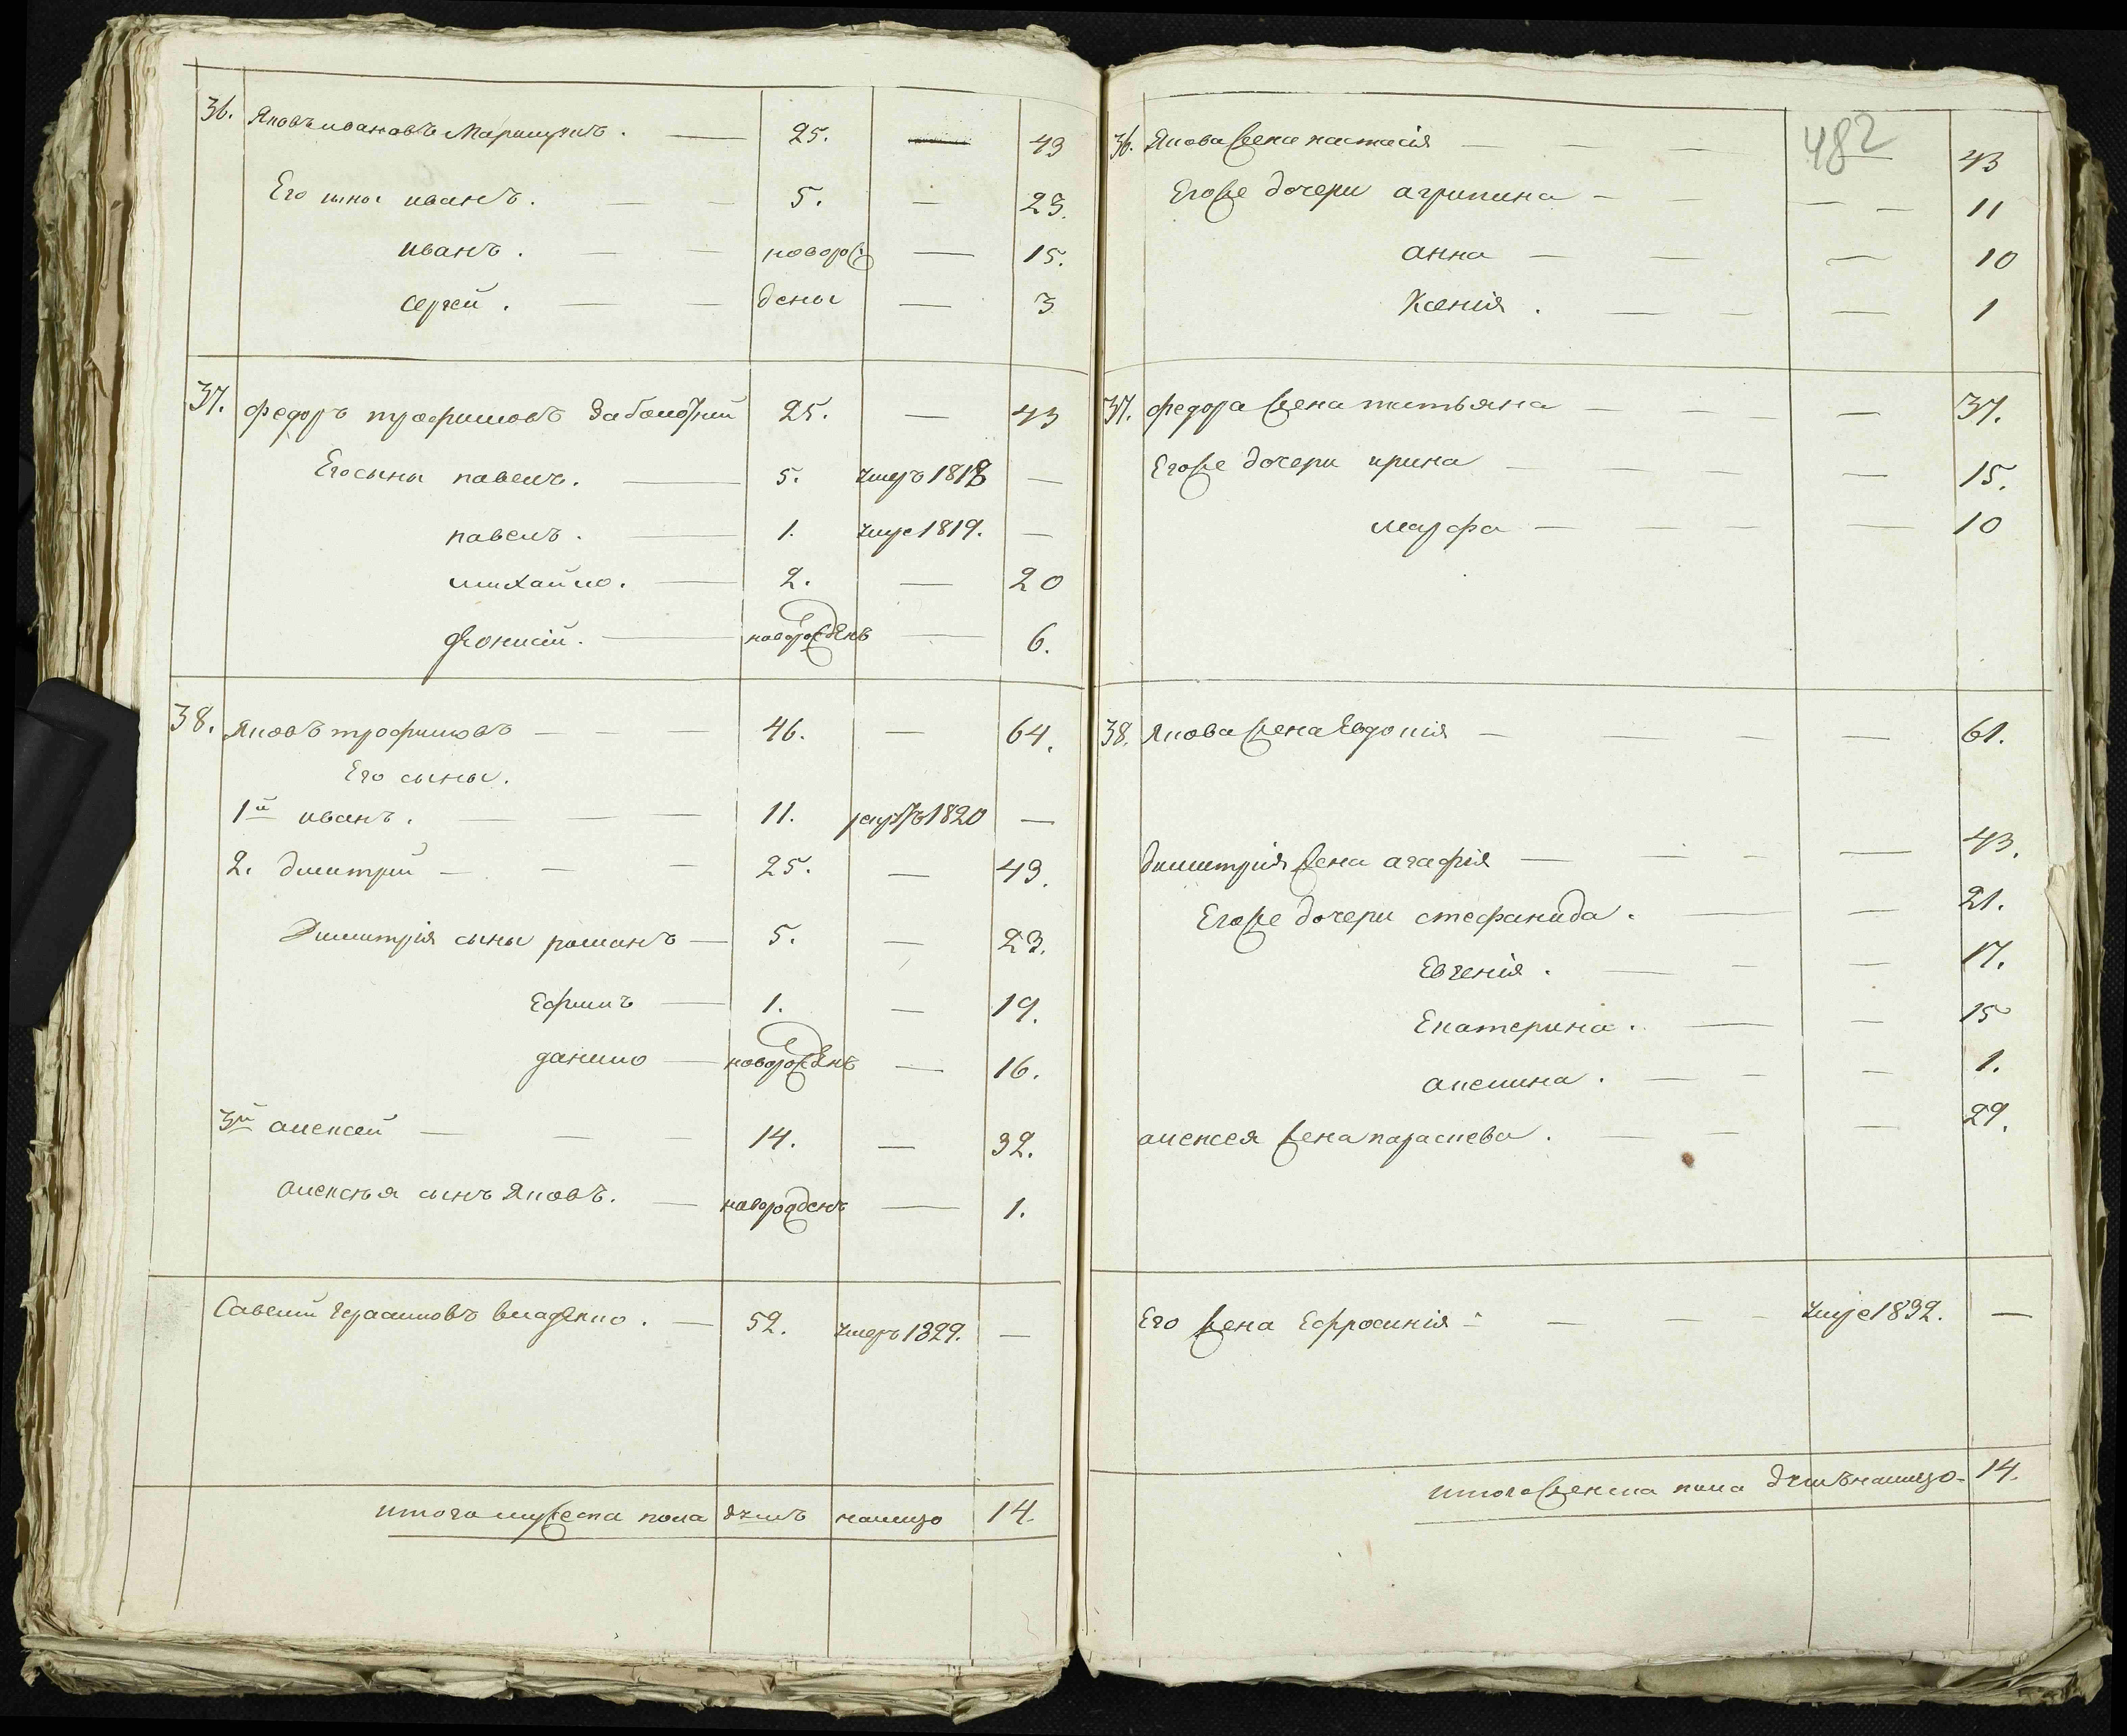 36. Яковъ ивановъ 25. 43
Его сыны иванъ. 5. 23.
иванъ. новорож 15.
сергей. дены 3
37. федоръ трофимовъ 25. 43
Его сыны павелъ. 5. умеръ 1818
павелъ. 1. умре 1819.
михайло. 2. 20
новорождѣнъ 6.
38. Яковъ трофимовъ 46. 64.
Его сыны.
1й иванъ. 11. 1820
2. дмитрий 25. 43.
Димитрія сыны романъ 5. 23.
Ефимъ 1. 19.
данило новорождѣнъ 16.
3й алексей 14. 32.
алексѣя сынъ Яковъ. новорожденъ 1.
Савелий герасимовъ 52. умеръ 1829.
итого мужеска пола душъ налицо 14.
482
36. Якова жена настасія 43
Егоже дочери агрипина 11
анна 10
Ксенія. 1
37. федора жена татьяна 37.
Егоже дочери ирина 15.
марфа 10
38. Якова жена Евдокія 61.
димитрія жена агафія 43.
Егоже дочери стефанида. 21.
Евгенія. 17.
Екатерина. 15
акелина. 1.
алексея жена параскева. 29.
Его жена Ефросинія умре 1832.
итого женска пола душъ налицо 14.